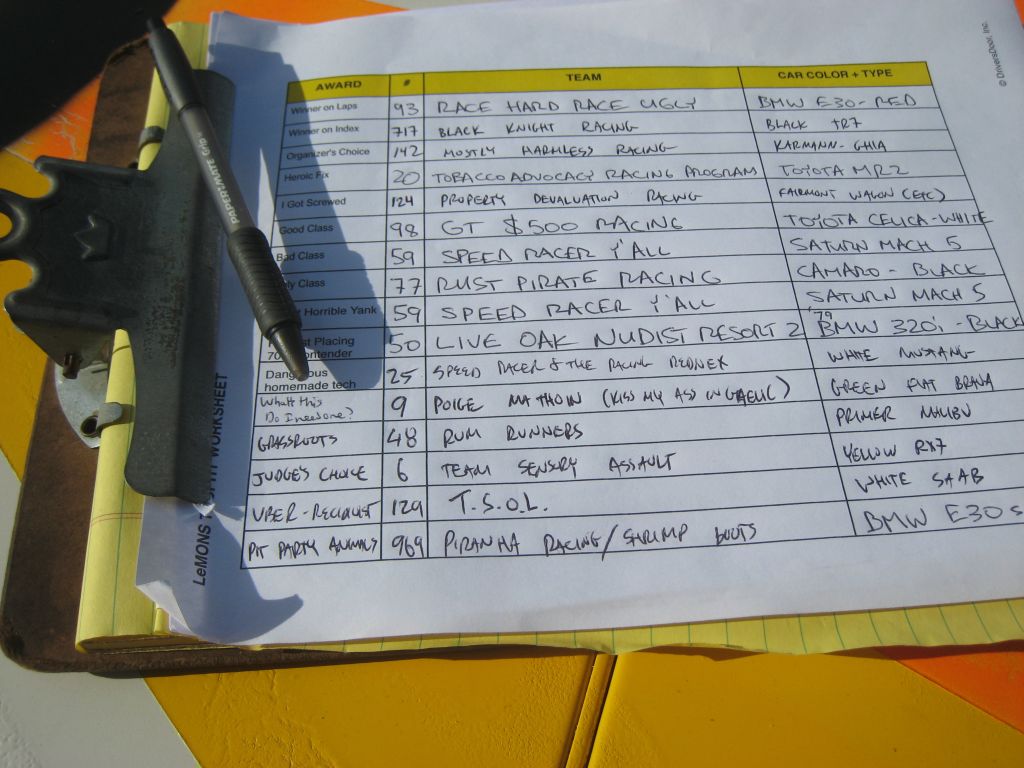 PAPERMATE GRIP
© DriversDoor, Inc.
AWARD # TEAM CAR COLOR + TYPE
Winner on Laps 93 RACE HARD RACE UGLY BMW E30 - RED
Winner on Index 717 BLACK KNIGHT RACING BLACK TR7
Organizer's Choice 142 MOSTLY HARMLESS RACING KARMANN-GHIA
Heroic Fix 20 TOBACCO ADVOCACY RACING PROGRAM TOYOTA MR2
I Got Screwed 124 PROPERTY DEVALUATION RACING FAIRMONT WAGON (ETC)
Good Class 98 GT $500 RACING TOYOTA CELICA-WHITE
Bad Class 59 SPEED RACER Y'ALL SATURN MACH 5
Class 77 RUST PIRATE RACING CAMARO - BLACK
Horrible Yank 59 SPEED RACER Y'ALL SATURN MACH 5
Placing 50 LIVE OAK NUDIST RESORT 2 '79 BMW 320i - BLACK
Dangerous homemade tech 25 SPEED RACER & THE RACING REDNEX WHITE MUSTANG
Do I need one? 9 (KISS MY ASS IN GAELIC) GREEN FIAT BRAVA
GRASSROOTS 48 RUM RUNNERS PRIMER MALIBU
JUDGE'S CHOICE 6 TEAM SENSORY ASSAULT YELLOW RX7
129 T.S.O.L. WHITE SAAB
PIT PARTY ANIMALS 969 PIRANHA RACING/SHRIMP BOOTS BMW E30s
LeMONS WORKSHEET